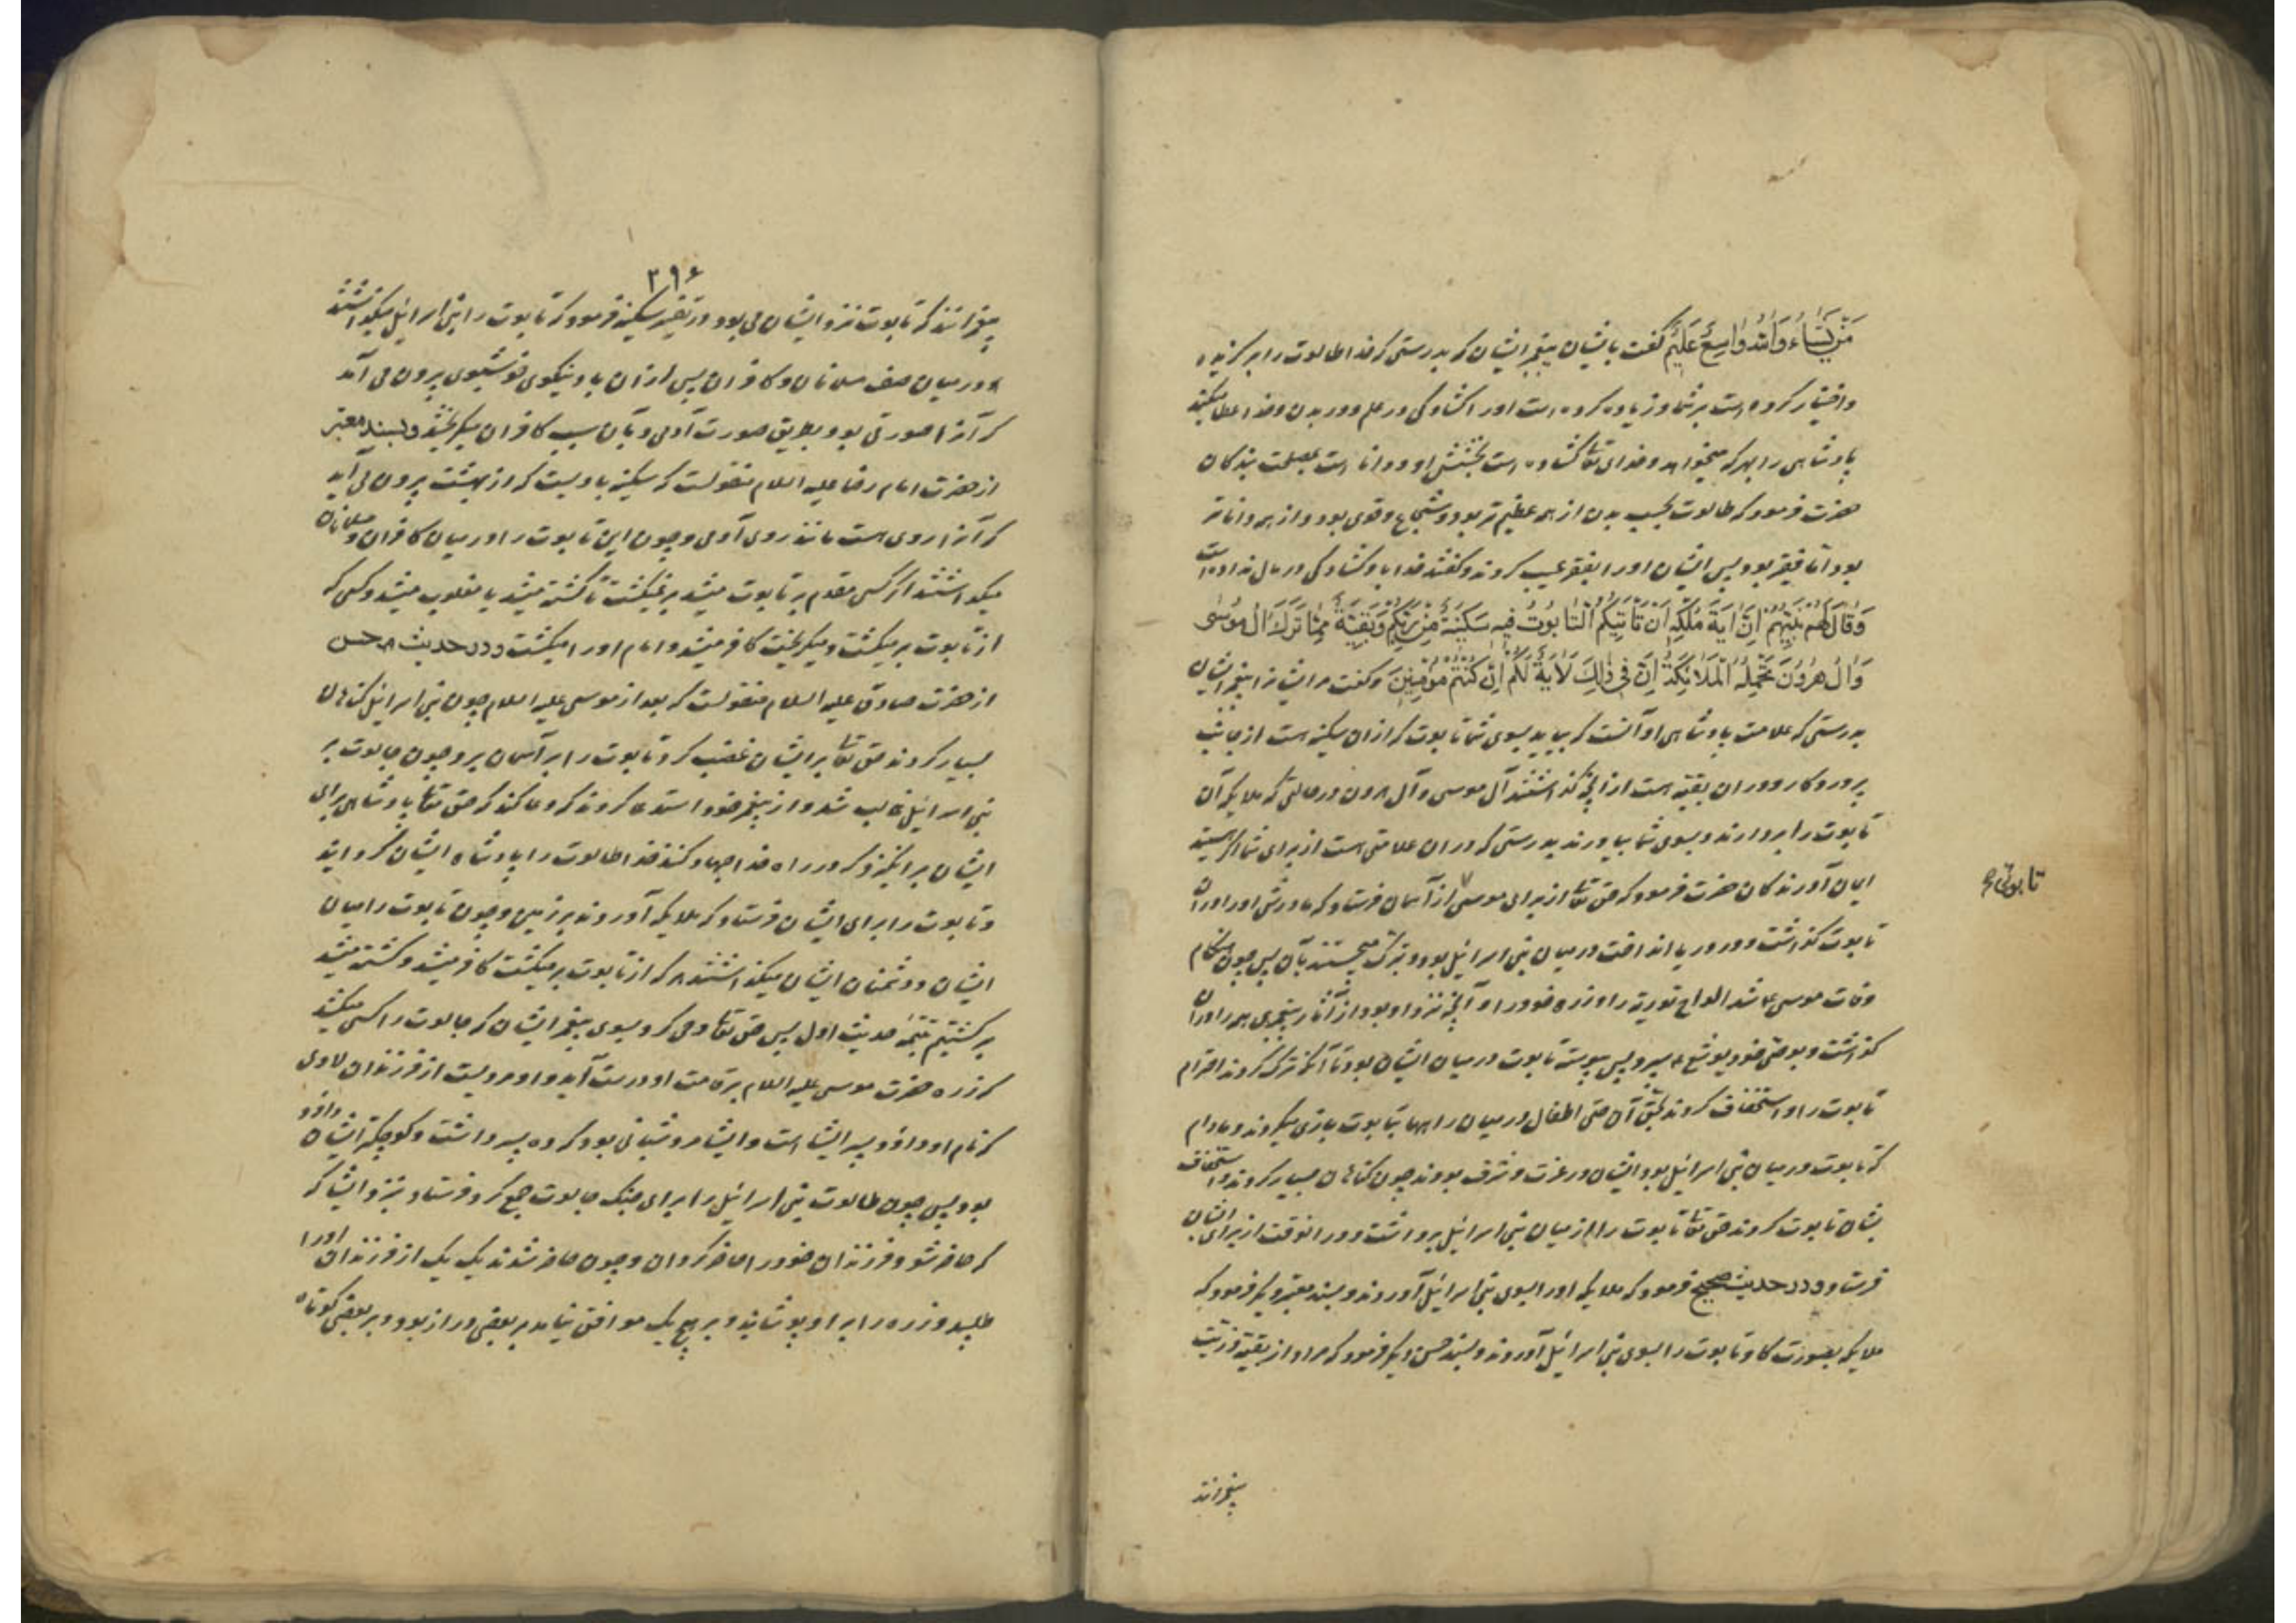 مَنْ يَشَاءُ وَاللهُ وَاسِعٌ عَلِيمٌ گفت بایشان پیغمبر ایشان که بدرستی که خدا طالوت را برگزیده
و اختیار کرده است بر شما و زیاده کرده است او را گشادگی در علم و در بدن و خدا عطا میکند
پادشاهی را بهر که میخواهد و خدای تعا گشاده است بخشش او و دانا است بمصلحت بندگان
حضرت فرمود که طالوت بحسب بدن از همه عظیم تر بود و شجاع و قوی بود و از همه داناتر
بود اما فقیر بود پس ایشان او را بفقر عیب کردند و گفتند خدا باو گشادگی در مال نداده است
وَقَالَ لَهُمْ نَبِيُّهُمْ اِنَّ اٰيَةَ مُلْكِهِ اَنْ تَأْتِيَكُمُ التَّابُوتُ فِيهِ سَكِينَةٌ مِنْ رَبِّكُمْ وَبَقِيَّةٌ مِمَّا تَرَكَ اٰلُ مُوسٰى
وَاٰلُ هٰرُونَ تَحْمِلُهُ الْمَلَائِكَةُ اِنَّ فِى ذٰلِكَ لَاٰيَةً لَكُمْ اِنْ كُنْتُمْ مُؤْمِنِينَ و گفت مر ایشانرا پیغمبر ایشان
بدرستی که علامت پادشاهی او آنست که بیاید بسوی شما تابوت که در آن سکینه هست از جانب
پروردگار و در ان بقیه هست از آنچه گذاشتند آل موسی و آل هرون در حالتی که ملایکه آن
تابوت را بردارند و بسوی شما بیاورند بدرستی که در ان علامتی هست از برای شما اگر هستید
ایمان آورندگان حضرت فرمود که حق تعا از برای موسی از آسمان فرستاد که مادرش او را در ان
تابوتی
تابوت گذاشت و در دریا انداخت در میان بنی اسرائیل بود و تبرک میجستند بآن پس چون هنگام
وفات موسی ع شد الواح توریة را و زره خود را و آنچه نزد او بود از آثار پیغمبری همه را در ان
گذاشت و بوصی خود یوشع ع سپرد پس پیوسته تابوت در میان ایشان بود تا آنکه ترک کردند احترام
تابوت را و استخفاف کردند بحق آن حتی اطفال در میان راهها با تابوت بازی میکردند و مادام
که تابوت در میان بنی اسرائیل بود ایشان در عزت و شرف بودند چون گناهان بسیار کردند و استخفاف
بشان تابوت کردند حق تعا تابوت را از میان بنی اسرائیل برداشت و در انوقت از برای ایشان
فرستاد و در حدیث صحیح فرمود که ملایکه او را بسوی بنی اسرائیل آوردند و بسند معتبر دیگر فرمود که
ملایکه بصورت گاو تابوت را بسوی بنی اسرائیل آوردند و بسند حسن دیگر فرمود که مراد از بقیه ذریت
پیغمبرانند
۳۹۶
پیغمبرانند که تابوت نزد ایشان می بود و در تفسیر سکینه فرمود که تابوت را بنی اسرائیل میگذاشتند
در میان صف مسلمانان و کافران پس از ان باد نیکوی خوشبوی بیرون می آمد
که آنرا صورتی بود بطریق صورت آدمی و بآن سبب کافران میگریختند و بسند معتبر
از حضرت امام رضا علیه السلام منقولست که سکینه بادیست که از بهشت بیرون می آید
که آنرا روی هست مانند روی آدمی و چون این تابوت را در میان کافران و مسلمانان
میگذاشتند اگر کسی مقدم بر تابوت میشد بر نمیگشت تا کشته میشد یا مغلوب میشد و کسی که
از تابوت بر میگشت و میگریخت کافر میشد و امام او را میکشت و در حدیث حسن
از حضرت صادق علیه السلام منقولست که بعد از موسی علیه السلام چون بنی اسرائیل گناهان
بسیار کردند حق تعا بر ایشان غضب کرد و تابوت را بر آسمان برد و چون جالوت بر
بنی اسرائیل غالب شد و از پیغمبر خود استدعا کردند که دعا کند که حق تعا پادشاهی برای
ایشان برانگیزد که در راه خدا جهاد کنند خدا طالوت را پادشاه ایشان گردانید
و تابوت را برای ایشان فرستاد که ملایکه آوردند بر زمین و چون تابوت را میان
ایشان و دشمنان ایشان میگذاشتند هر که از تابوت بر میگشت کافر میشد و کشته میشد
برگشتیم بتتمهٔ حدیث اول پس حق تعا وحی کرد بسوی پیغمبر ایشان که جالوت را کسی میکشد
که زره حضرت موسی علیه السلام بر قامت او درست آید و او مردیست از فرزندان لاوی
که نام او داود پسر ایشا است و ایشا مرد شبانی بود که ده پسر داشت و کوچکتر ایشان داود
بود پس چون طالوت بنی اسرائیل را برای جنگ جالوت جمع کرد فرستاد بنزد ایشا که
که حاضر شو و فرزندان خود را حاضر گردان و چون حاضر شدند یک یک از فرزندان او را
طلبید و زره را بر او پوشانید و بر هیچ یک موافق نیامد بر بعضی دراز بود و بر بعضی کوتاه